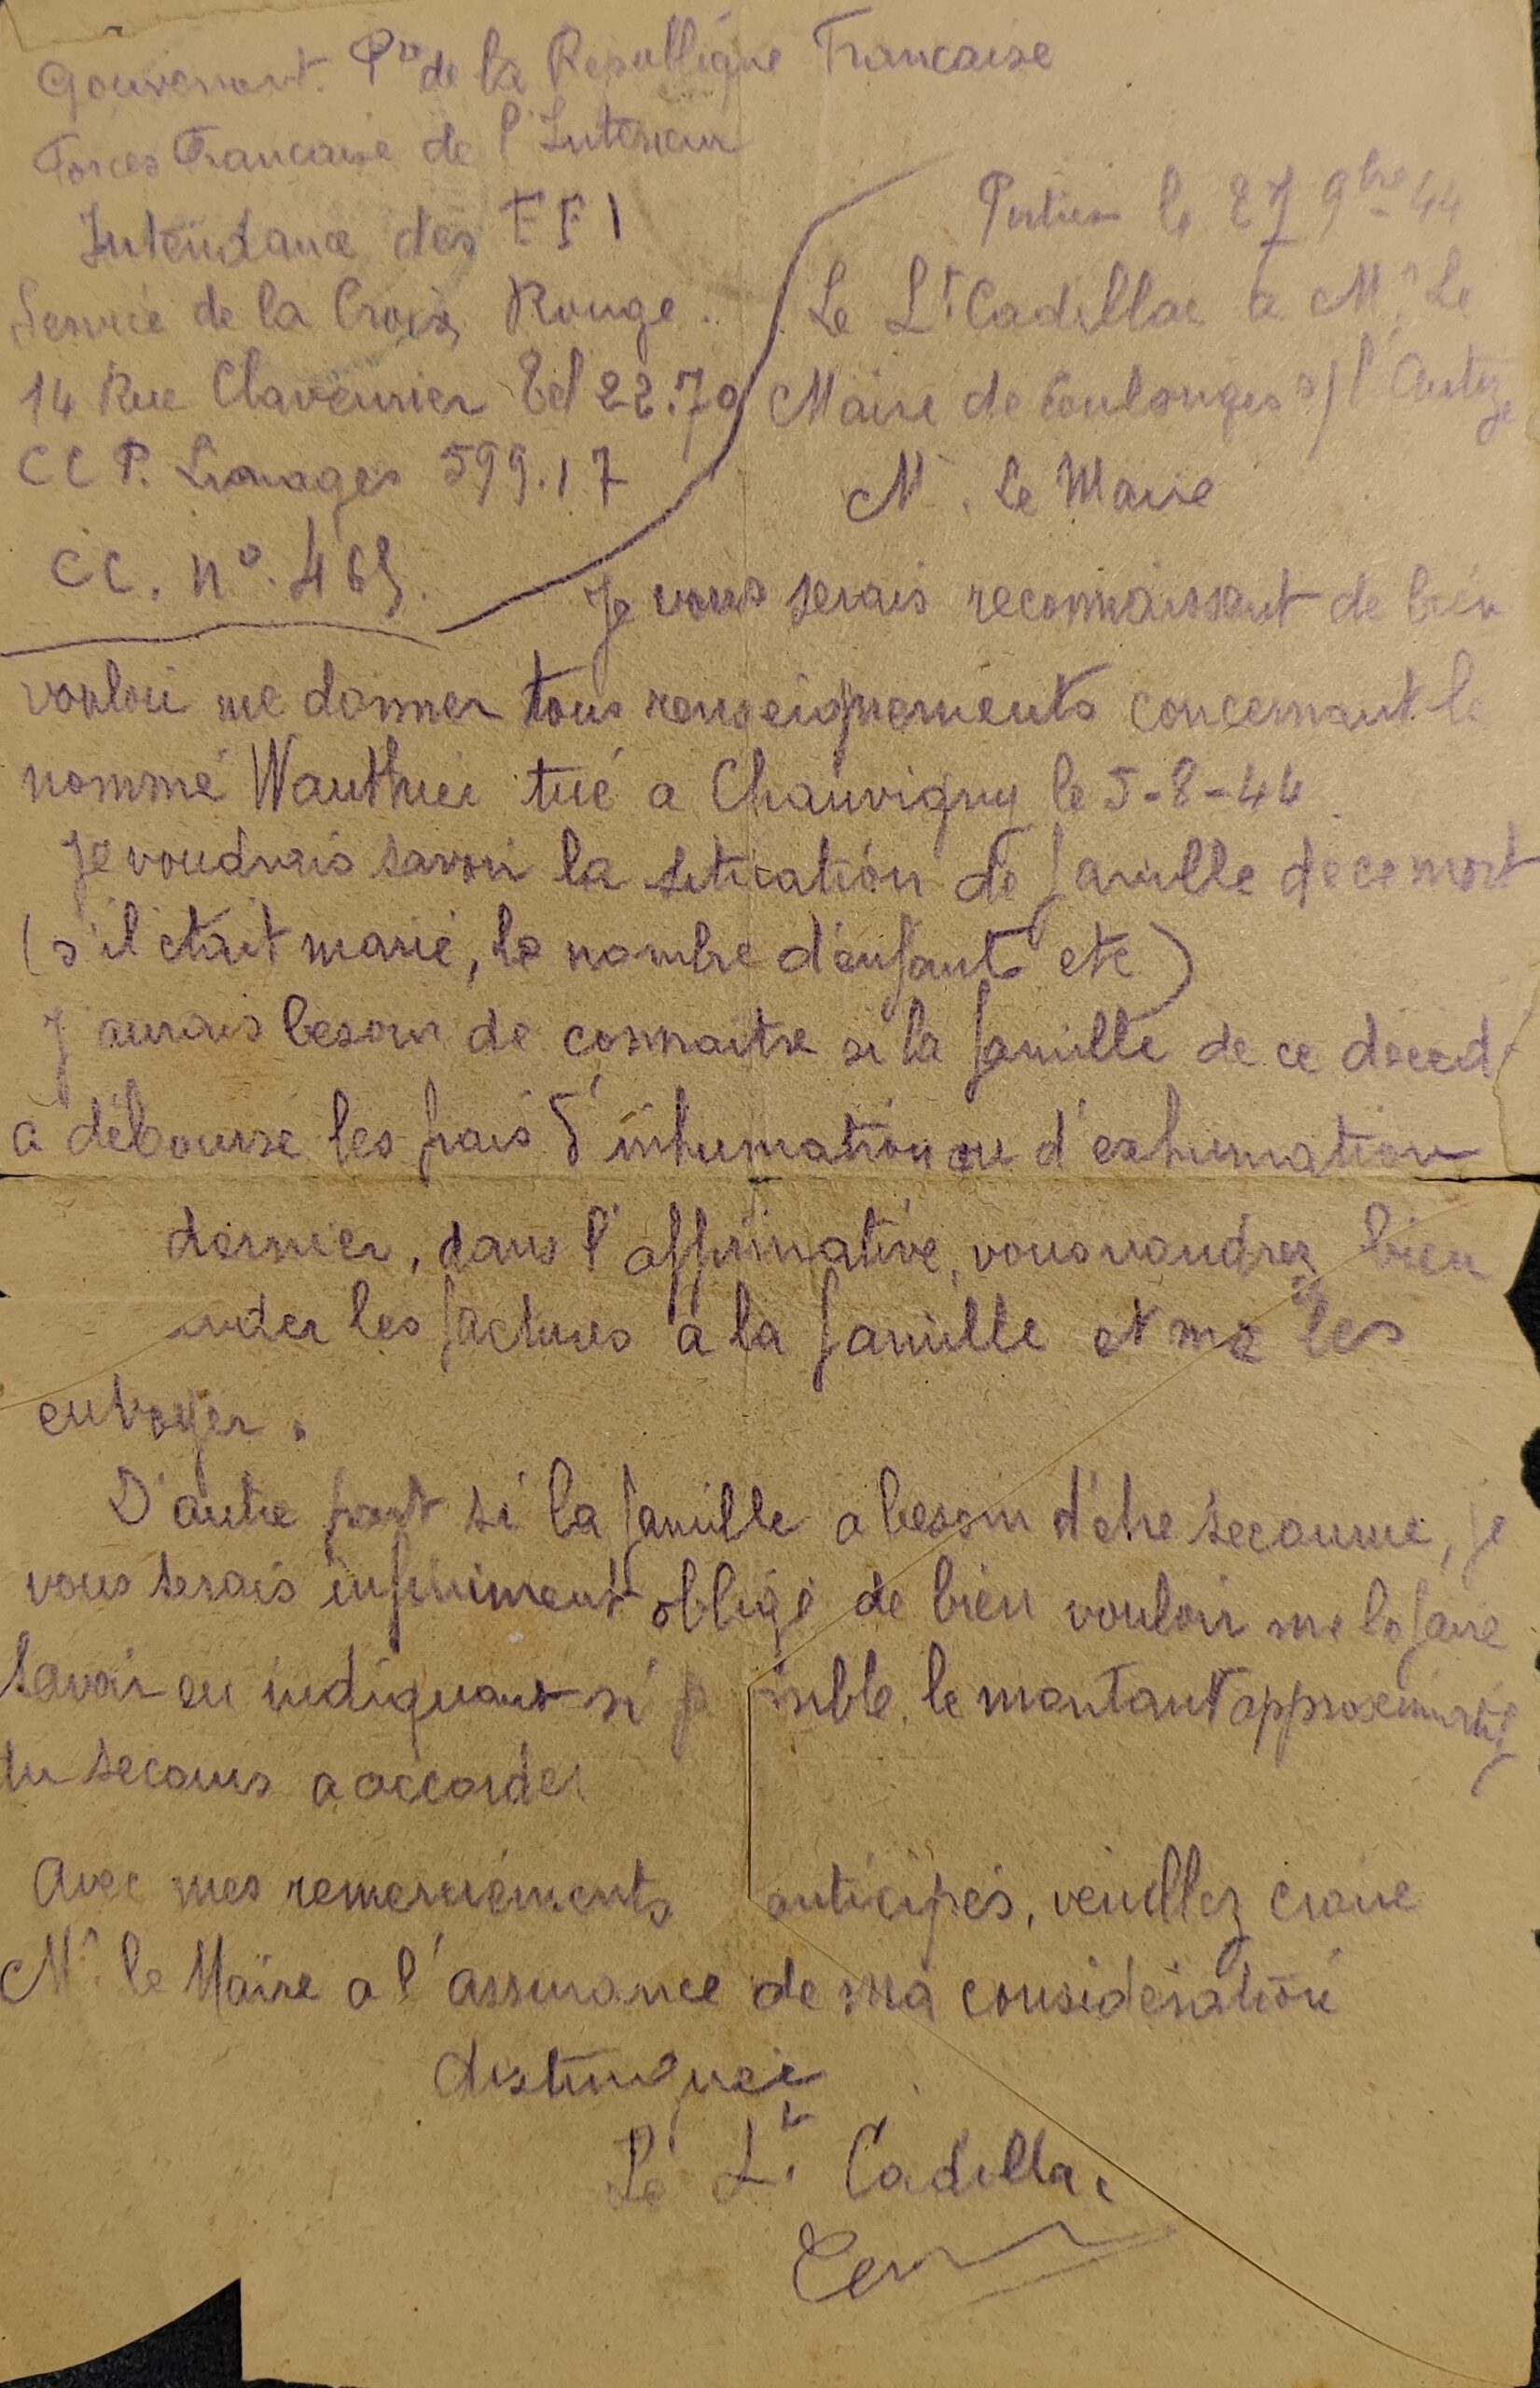 Gouvernont. Pre de la Republique Francaise
Forces Francaise de l'Interieur
Intendance des FFI
Service de la Croix Rouge.
14 Rue Claveurier Tel 22.70
CCP. Limoges 599.17
CC. n°. 465.
Poitiers le 27 9bre 44
Le Lt Cadillac a Mr Le
Maire de Coulonges s/l'Autize
Mr. Le Maire
Je vous serais reconnaissant de bien
vouloir me donner tous renseignements concernant le
nommé Wauthier tué a Chauvigny le 5-8-44
Je voudrais savoir la situation de famille de ce mort
(s'il était marié, le nombre d'enfants etc)
J'aurais besoin de connaitre si la famille de ce décéd
a déboursé les frais d'inhumation ou d'exhumation
dernier, dans l'affirmative, vous voudrez bien
les factures a la famille et me les
envoyer.
D'autre part si la famille a besoin d'être secourue, je
vous serais infiniment obligé de bien vouloir me le faire
savoir en indiquant si p ssible, le montant approximatif
du secours a accorder
Avec mes remerciements anticipés, veuillez croire
Mr le Maire a l'assurance de ma considération
distinguée
Le Lt. Cadillac